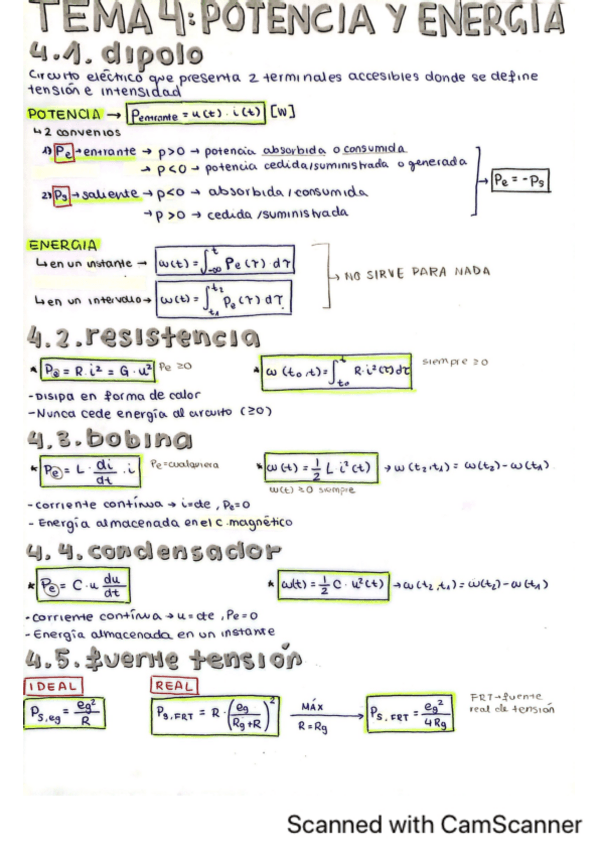 TEMA 4: POTENCIA Y ENERGIA
4.1. dipolo
Circuito eléctrico que presenta 2 terminales accesibles donde se define
tensión e intensidad
POTENCIA → Pentrante = u(t) · i(t) [W]
↳ 2 convenios
1) Pe → entrante → p>0 → potencia absorbida o consumida
→ p<0 → potencia cedida/suministrada o generada
→ Pe = -Ps
2) Ps → saliente → p<0 → absorbida/consumida
→ p>0 → cedida/suministrada
ENERGIA
↳ en un instante → ω(t) = ∫_{-∞}^{t} Pe(τ)·dτ
→ NO SIRVE PARA NADA
↳ en un intervalo → ω(t) = ∫_{t1}^{t2} Pe(τ) dτ
4.2. resistencia
* P = R·i² = G·u² Pe ≥0
* ω(t0,t) = ∫_{t0}^{t} R·i²(τ)dτ siempre ≥0
- Disipa en forma de calor
- Nunca cede energía al circuito (≥0)
4.3. bobina
* Pe = L · di/dt · i Pe = cualquiera
* ω(t) = 1/2 L i²(t) → ω(t2,t1) = ω(t2) - ω(t1)
ω(t) ≥0 siempre
- corriente contínua → i=cte, Pe=0
- Energía almacenada en el c. magnético
4.4. condensador
* Pe = C·u du/dt
* ω(t) = 1/2 C · u²(t) → ω(t2,t1) = ω(t2) - ω(t1)
- corriente contínua → u=cte, Pe=0
- Energía almacenada en un instante
4.5. fuente tensión
IDEAL REAL
Ps,eg = eg²/R
Ps,FRT = R·(eg/(Rg+R))² MÁX R=Rg → Ps.FRT = eg²/4Rg
FRT→fuente
real de tensión
Scanned with CamScanner